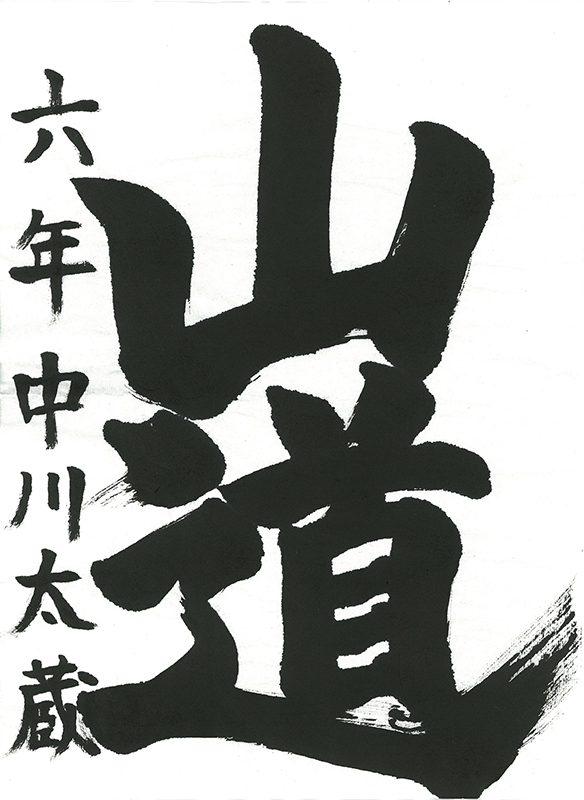 山道
六年中川太蔵